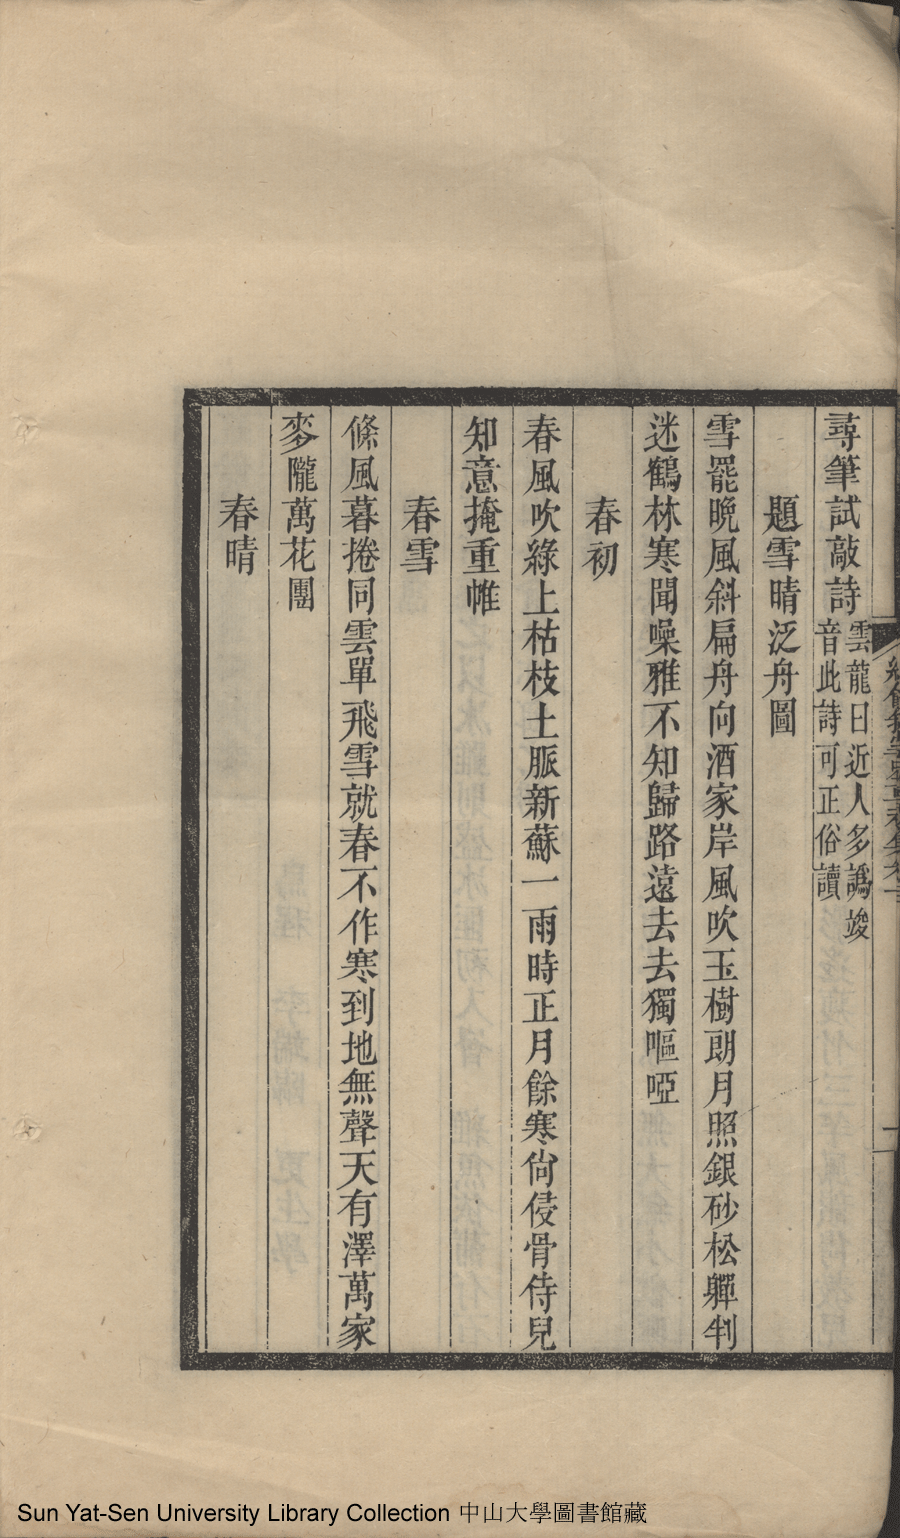 尋筆試敲詩雲龍曰近人多譌竣音此詩可正俗讀
題雪晴泛舟圖
雪罷晩風斜扁舟向酒家岸風吹玉樹朗月照銀砂松軃𠦜
迷鶴林寒聞噪雅不知歸路遠去去獨嘔啞
春初
春風吹綠上枯枝土脈新蘇一雨時正月餘寒尙侵骨侍兒
知意掩重帷
春雪
條風暮捲同雲單飛雪就春不作寒到地無聲天有澤萬家
麥隴萬花團
春晴
Sun Yat-Sen University Library Collection 中山大學圖書館藏